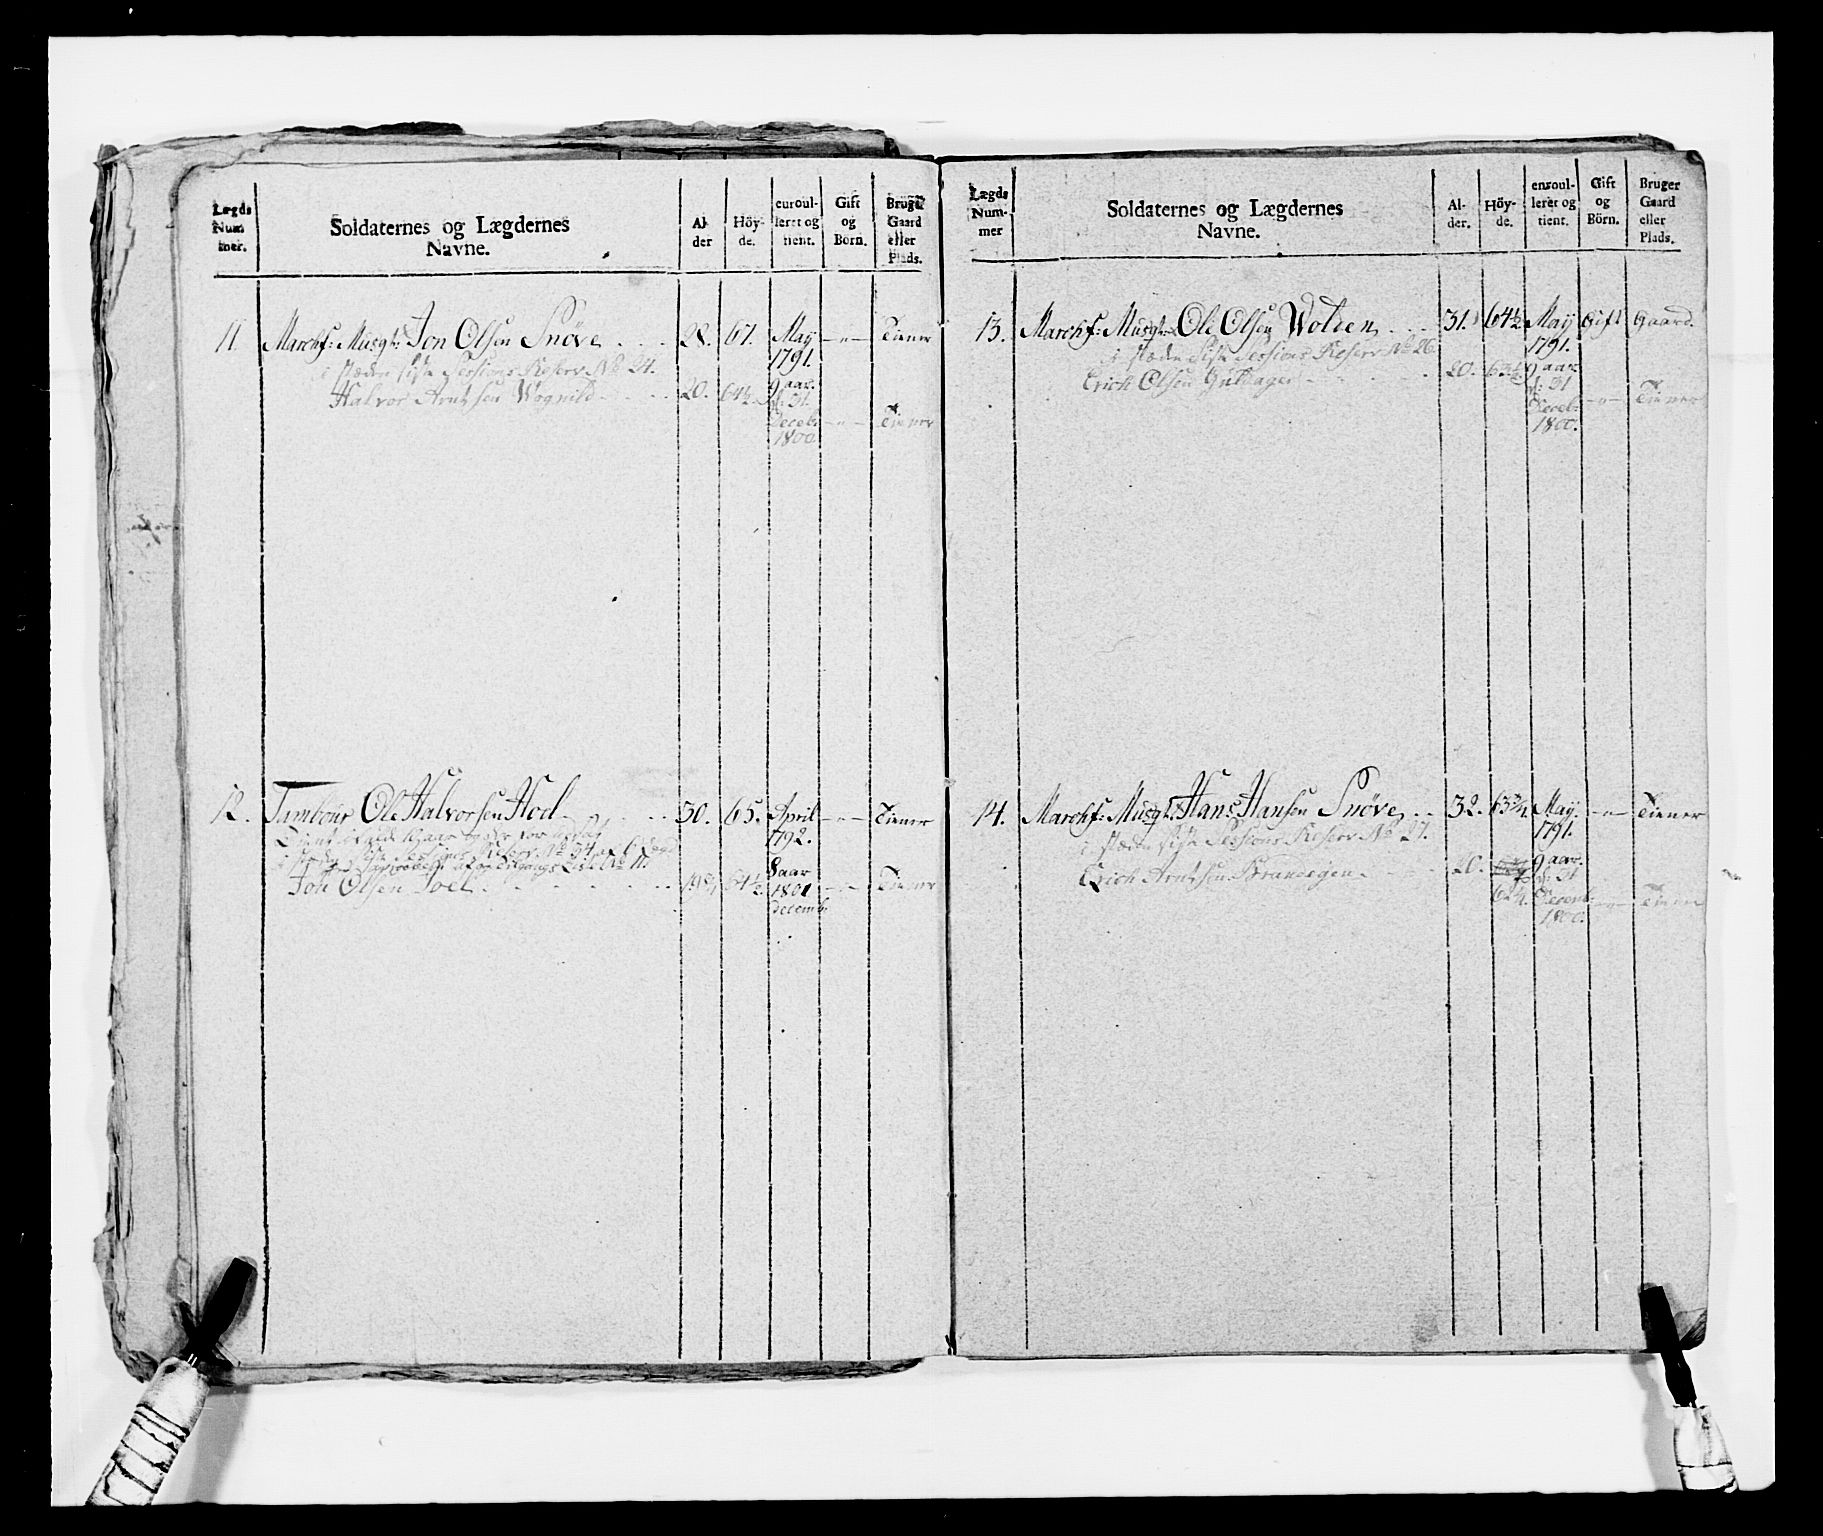 Lægds Num mer.
Soldaternes og Lægdernes Navne.
Al- der
Höy- de.
enroul- leret og tient.
Gift og Born.
Bruger Gaard eller Plads.
11. Marchf: Musqt: Jon Olsen Snöve 28. 67. May 1791. -"- Tiener
i stæden siste Sessions Reserv No 24.
Halvor Arntsen Wognild 20. 64½ 9 aar d: 31 Decebr 1800. -"- Tiener
12. Tambour Ole Halvorsen Hoel 30. 65. April 1792. -"- Tiener
Jon Olsen Joel 64½ 8 aar 1801 Decemb. -"- Tiener
Lægds Num- mer
Soldaternes og Lægdernes Navne.
Al- der.
Höy- de.
enroul- leret og tient.
Gift og Börn.
Bruger Gaard eller Plads.
13. Marchf: Musqt: Ole Olsen Wolden 31. 64½ May 1791. Gift Gaard.
i stæden siste Sessions Reserv No 26.
Erich Olsen Guldager 20. 9 aar d: 31 Decebr 1800. -"- Tiener
14. Marchf: Musqt: Hans Hansen Snöve 32. 63¾ May 1791. -"- Tiener
i stæden siste Sessions Reserv No 27.
Erich Arntsen Brandegen 20. 62¼ 9 aar d: 31 Decemb: 1800. -"- Tiener